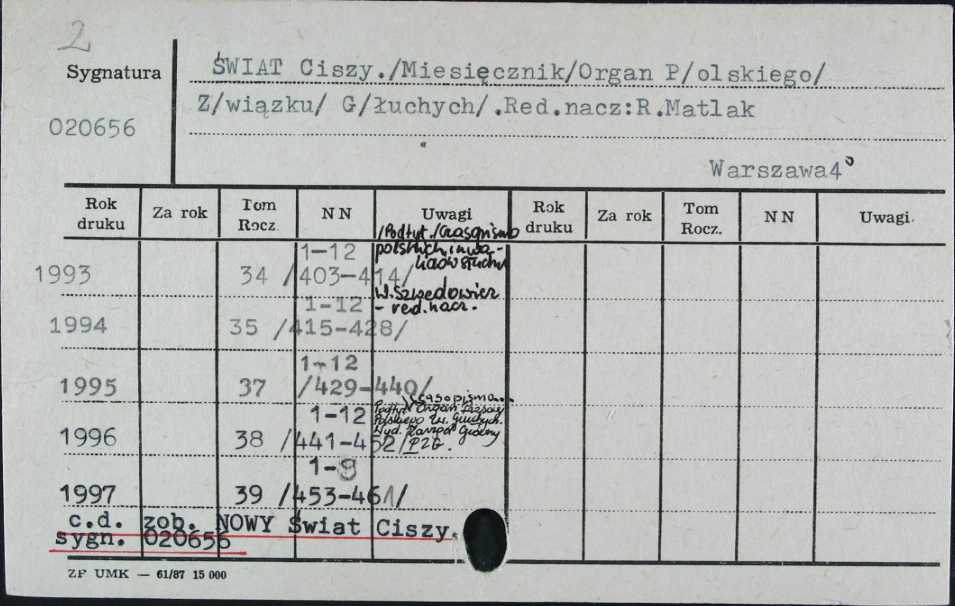 2
Sygnatura
020656
ŚWIAT Ciszy./Miesięcznik/Organ P/olskiego/
Z/wiązku/ G/łuchych/.Red.nacz:R.Matlak
Warszawa4°
Rok druku Za rok Tom Rocz. NN Uwagi Rok druku Za rok Tom Rocz. NN Uwagi
/Podtyt./Czasopismo
polskich inwa-
lidów słuchu
1-12
1993 34 /403-414/
W.Szwedowicz
- red.nacz.
1-12
1994 35 /415-428/
1-12
1995 37 /429-440/
czasopisma
Podtyt. Organ
Polskiego Zw. Głuchych.
Wyd. Zarząd Główny
PZG.
1-12
1996 38 /441-452/
1-9
1997 39 /453-461/
c.d. zob. NOWY Świat Ciszy.
sygn. 020656
ZP UMK — 61/87 15 000